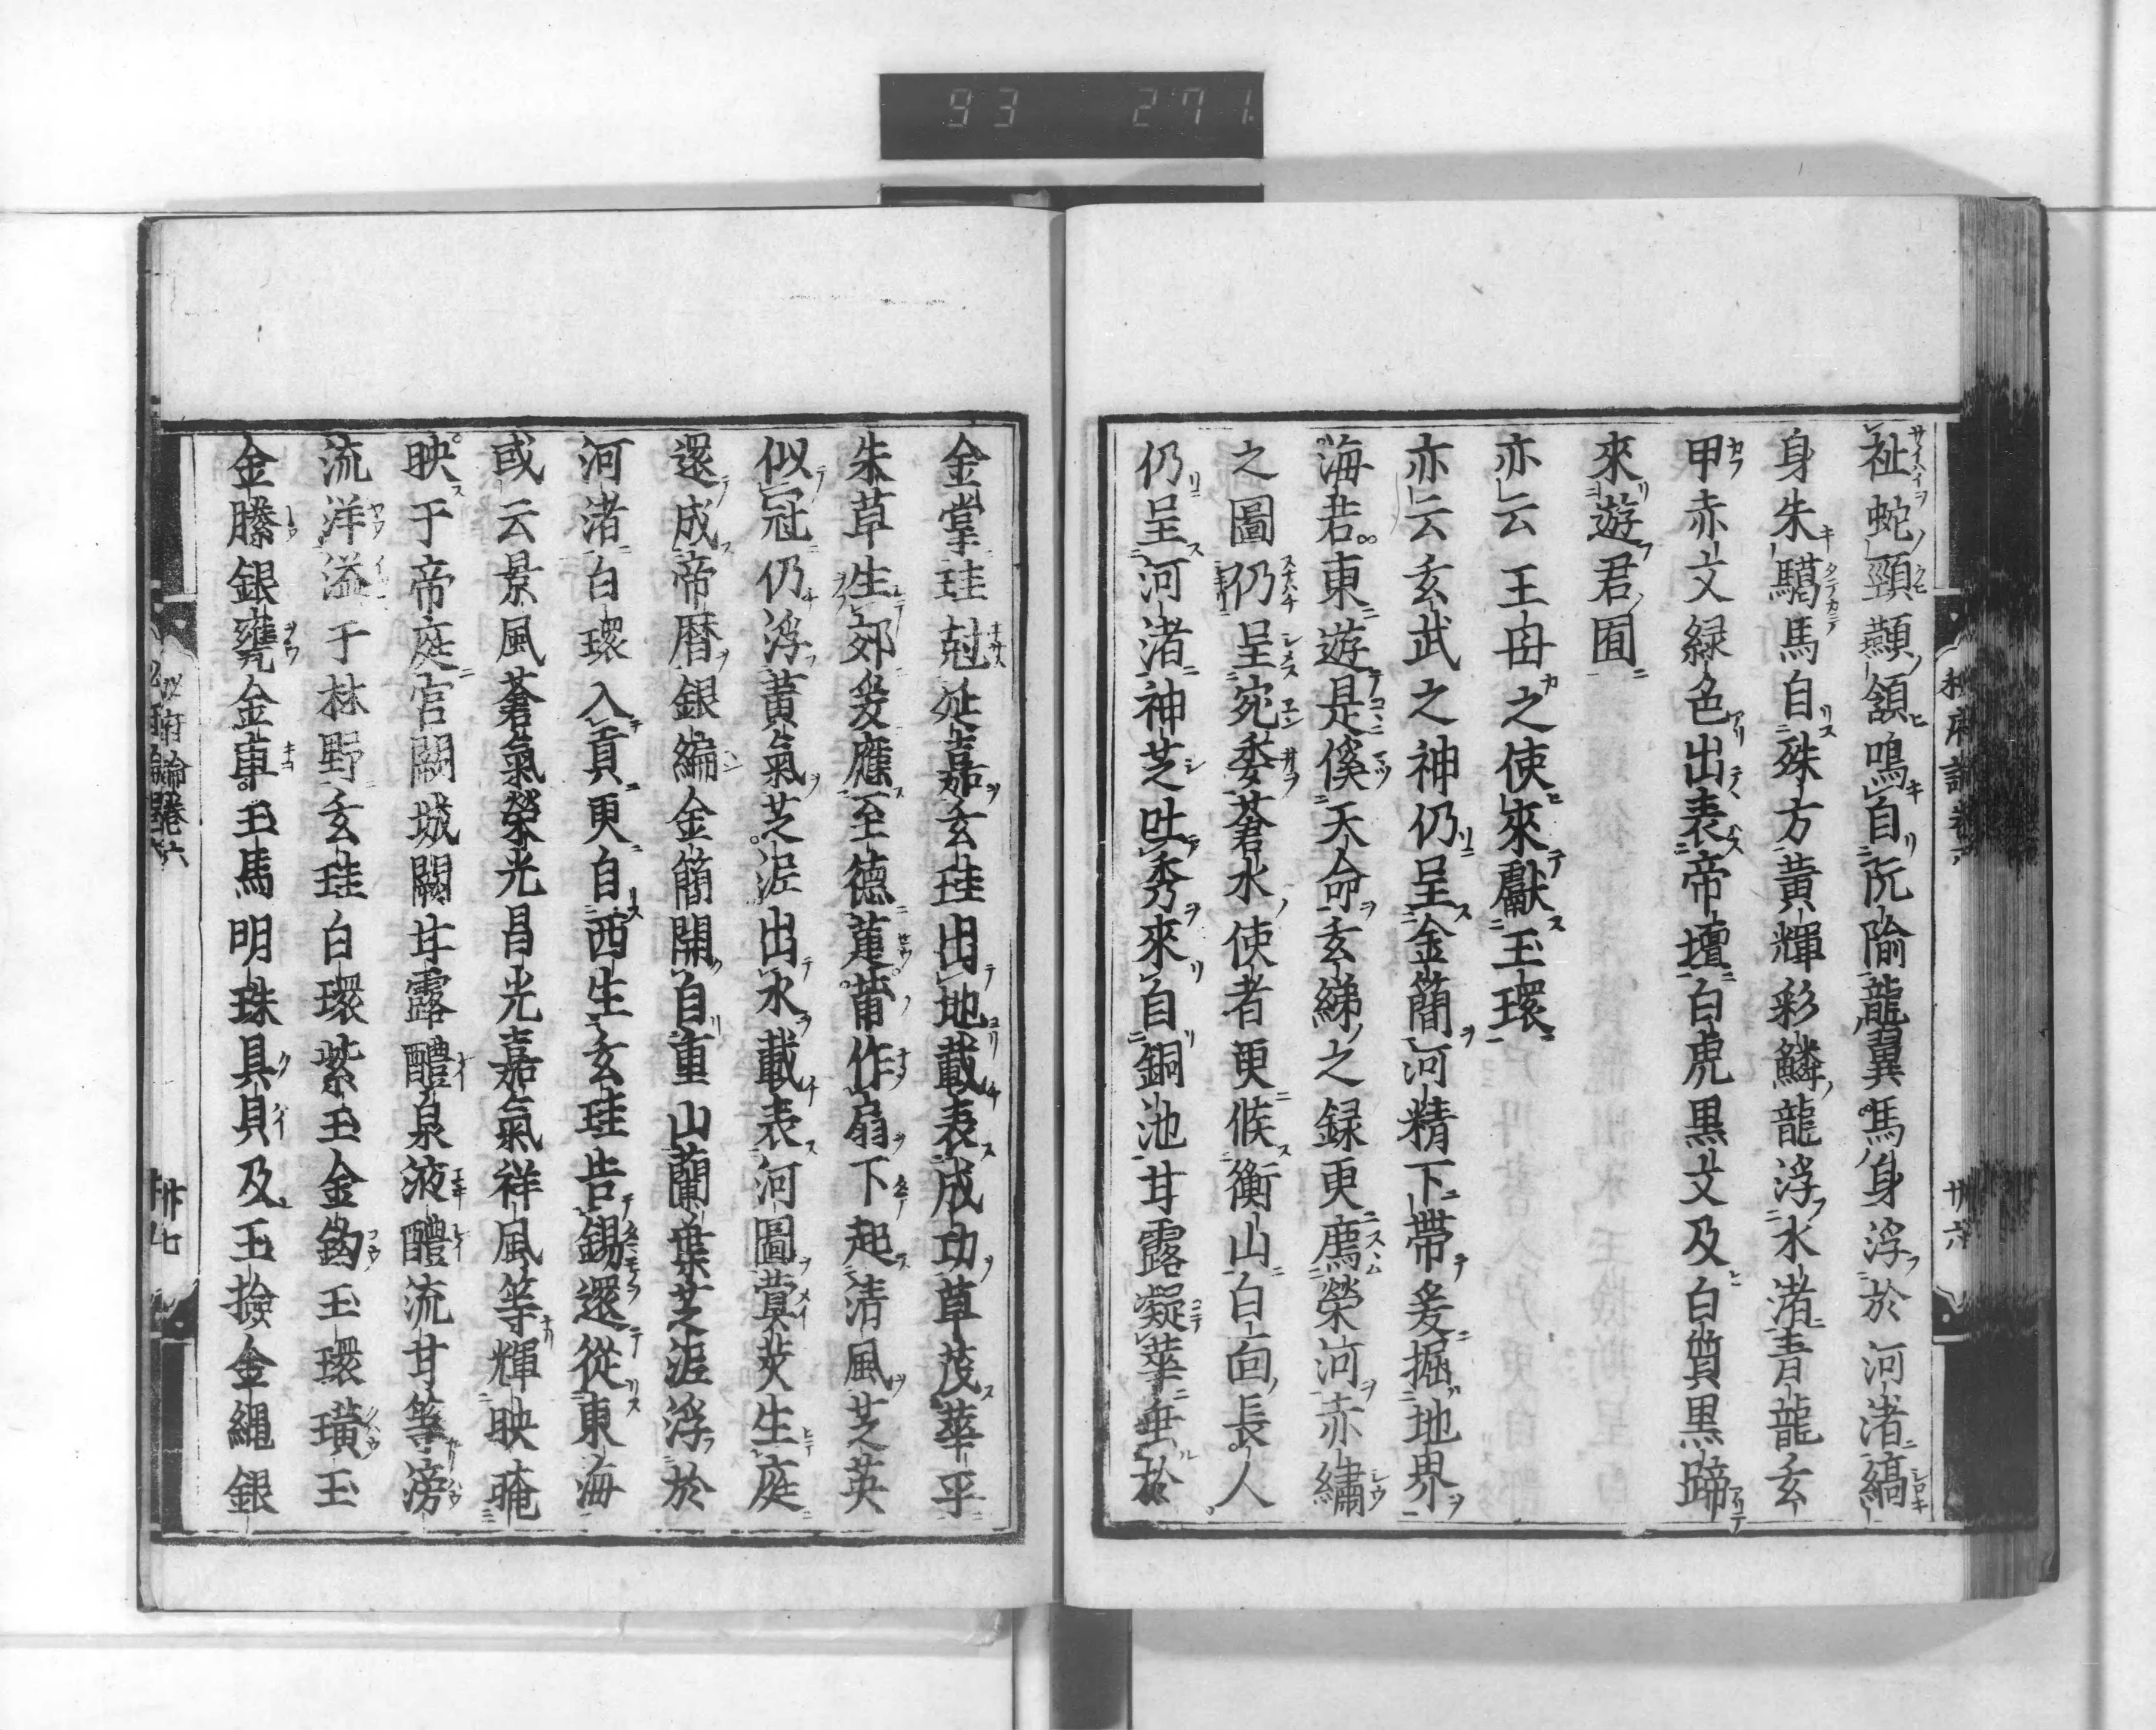 93 271
祉蛇頸顯頷鳴自阮隃龍翼馬身浮於河渚縞
身朱騮馬自殊方黄輝彩鱗龍浮水渚青龍玄
甲赤文緑色出表帝壇白虎黒文及白質黒蹄
來遊君囿
亦云王母之使來獻玉環
亦云玄武之神仍呈金簡河精下帶爰掘地界
海若東遊是傒天命玄綈之録更薦榮河赤繡
之圖仍呈宛委蒼水使者更候衡山白面長人
仍呈河渚神芝吐秀來自銅池甘露凝華垂於
金掌珪尅延嘉玄珪出地載表成功草茂華平
朱草生郊爰應至德萐莆作扇下起清風芝英
似冠仍浮黄氣芝泥出水載表河圖蓂莢生庭
還成帝暦銀編金簡開自重山蘭葉芝泥浮於
河渚白環入貢更自西生玄珪告錫還從東海
或云景風蒼氣榮光昌光嘉氣祥風等輝映晻
映于帝庭宮闕城闕甘露醴泉液醴流甘等滂
流洋溢于林野玄珪白環紫玉金鈎玉環璜玉
金縢銀甕金車玉馬明珠具貝及玉撿金繩銀
秘府論卷六
卅六
卅七